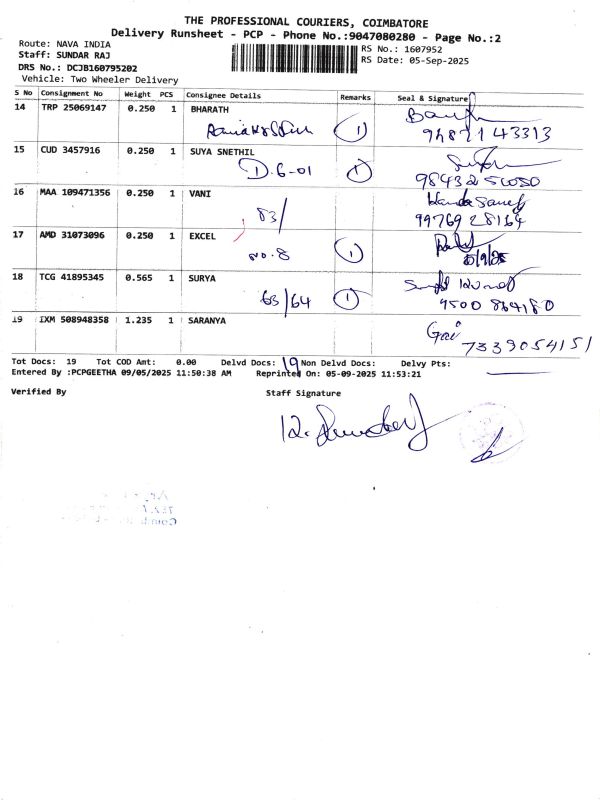 THE PROFESSIONAL COURIERS, COIMBATORE
Delivery Runsheet - PCP - Phone No.:9047080280 - Page No.:2
Route: NAVA INDIA
Staff: SUNDAR RAJ
DRS No.: DCJB160795202
Vehicle: Two Wheeler Delivery
RS No.: 1607952
RS Date: 05-Sep-2025
S No Consignment No Weight PCS Consignee Details Remarks Seal & Signature
14 TRP 25069147 0.250 1 BHARATH
1 94821 43313
15 CUD 3457916 0.250 1 SUYA SNETHIL
D.6-01 1 98432 56050
16 MAA 109471356 0.250 1 VANI
83/ 99769 28164
17 AMD 31073096 0.250 1 EXCEL
NO.8 1 5/9/25
18 TCG 41895345 0.565 1 SURYA
63/64 1 9500 864180
19 IXM 508948358 1.235 1 SARANYA
7339054151
Tot Docs: 19 Tot COD Amt: 0.00 Delvd Docs: 19 Non Delvd Docs: Delvy Pts:
Entered By :PCPGEETHA 09/05/2025 11:50:38 AM Reprinted On: 05-09-2025 11:53:21
Verified By Staff Signature